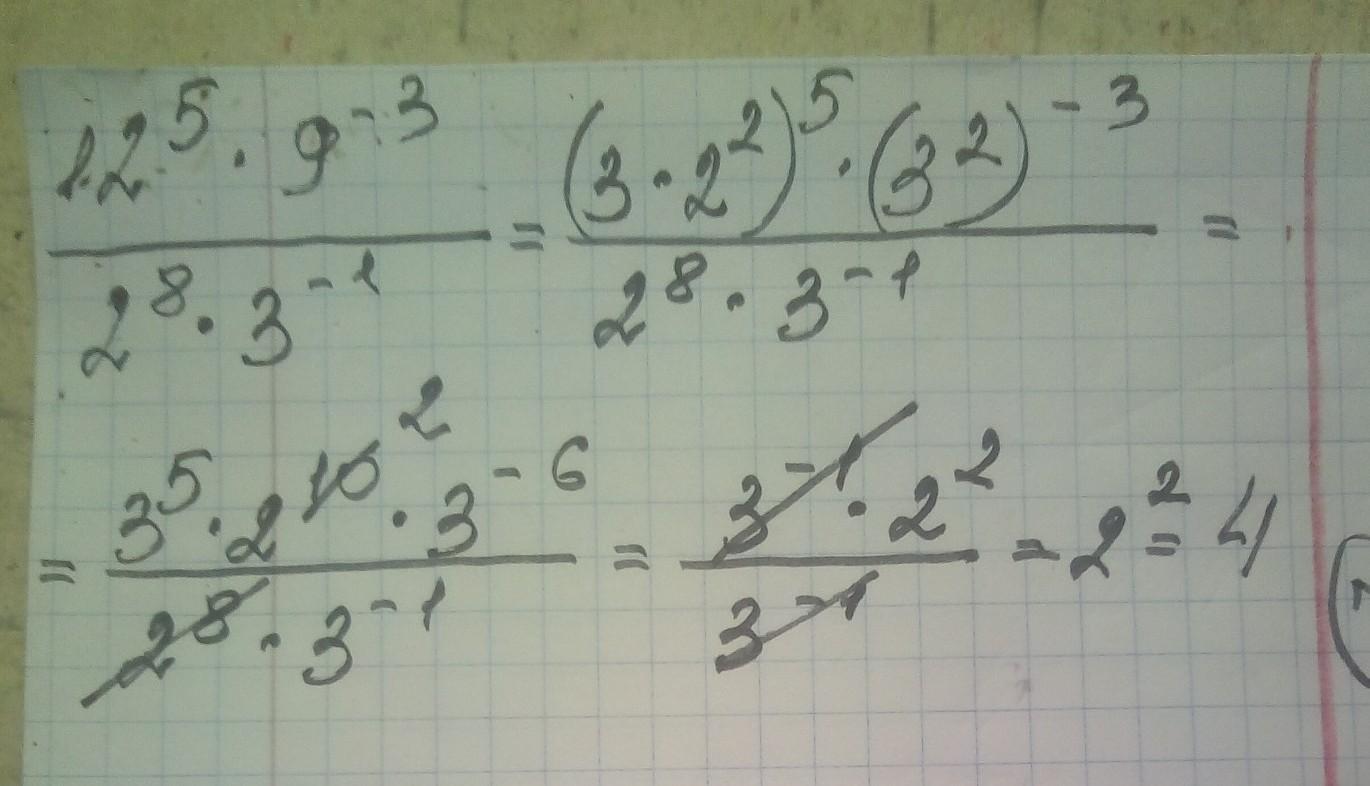 12^5 · 9^-3 / 2^8 · 3^-1 = (3 · 2^2)^5 · (3^2)^-3 / 2^8 · 3^-1 =
= 3^5 · 2^10 2 · 3^-6 / 2^8 · 3^-1 = 3^-1 · 2^2 / 3^-1 = 2^2 = 4